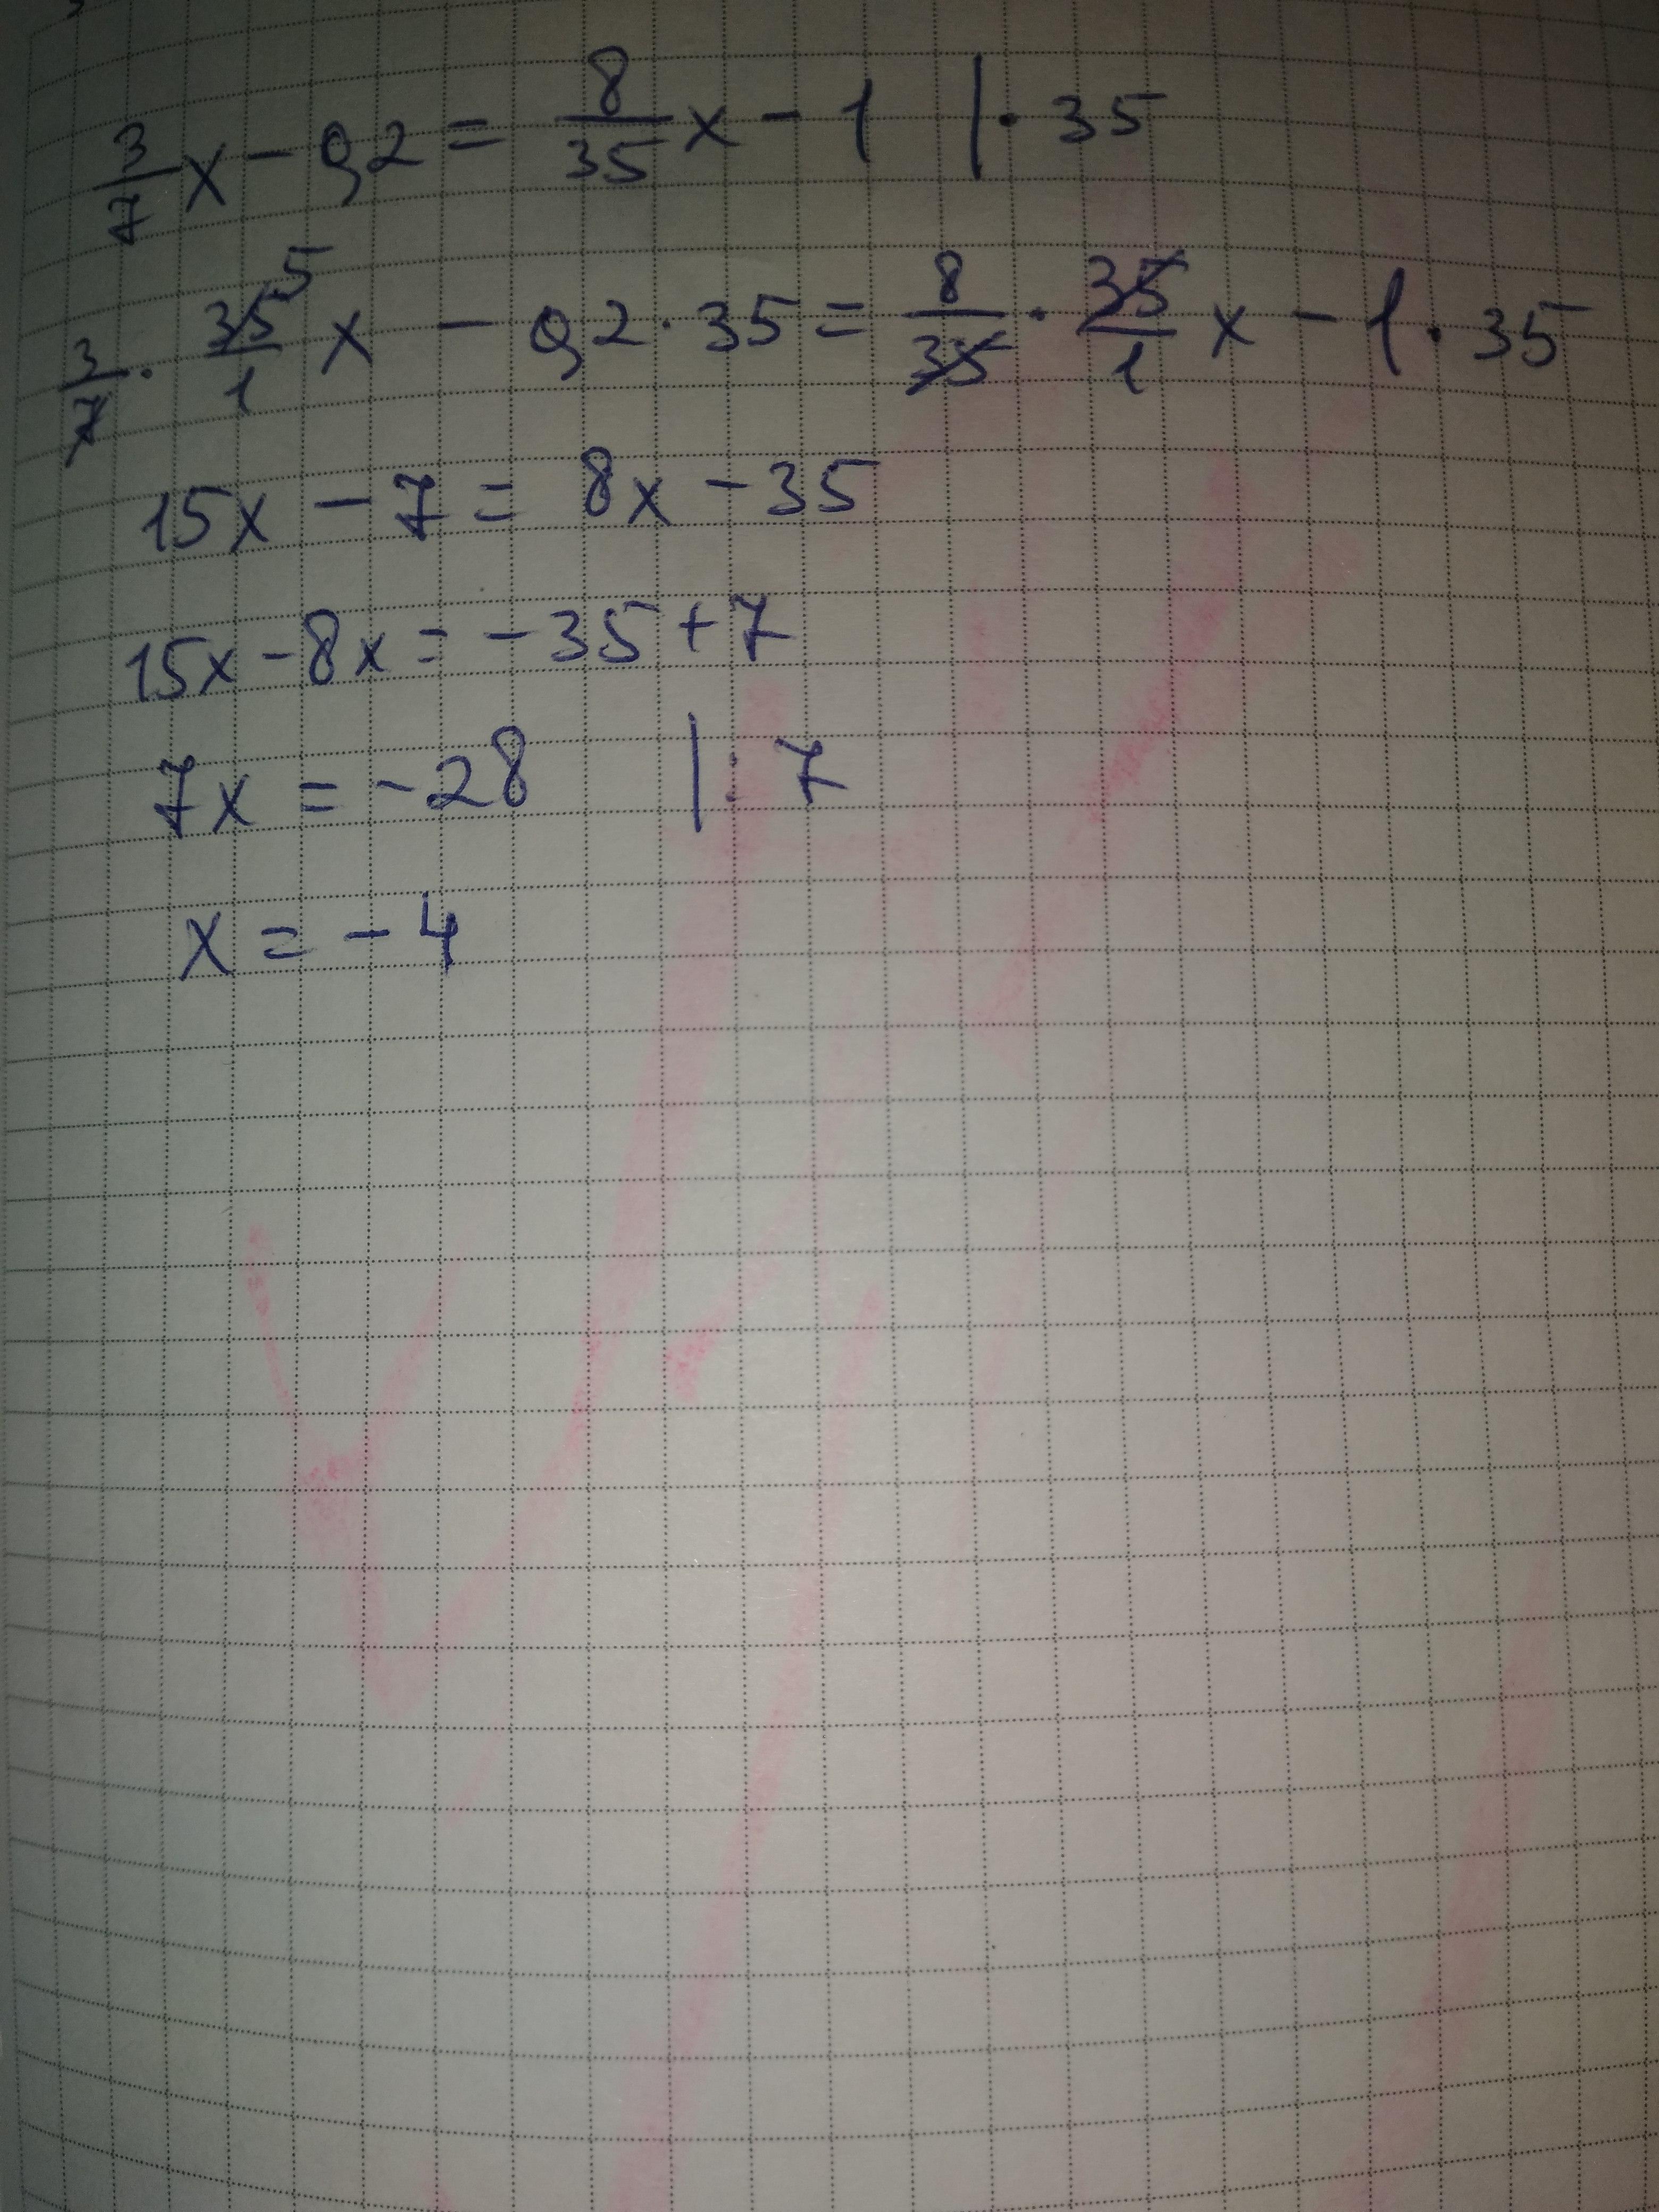 3/7 x - 0,2 = 8/35 x - 1 | · 35
3/7 · 35/1 5 x - 0,2 · 35 = 8/35 · 35/1 x - 1 · 35
15x - 7 = 8x - 35
15x - 8x = - 35 + 7
7x = - 28 | : 7
x = - 4